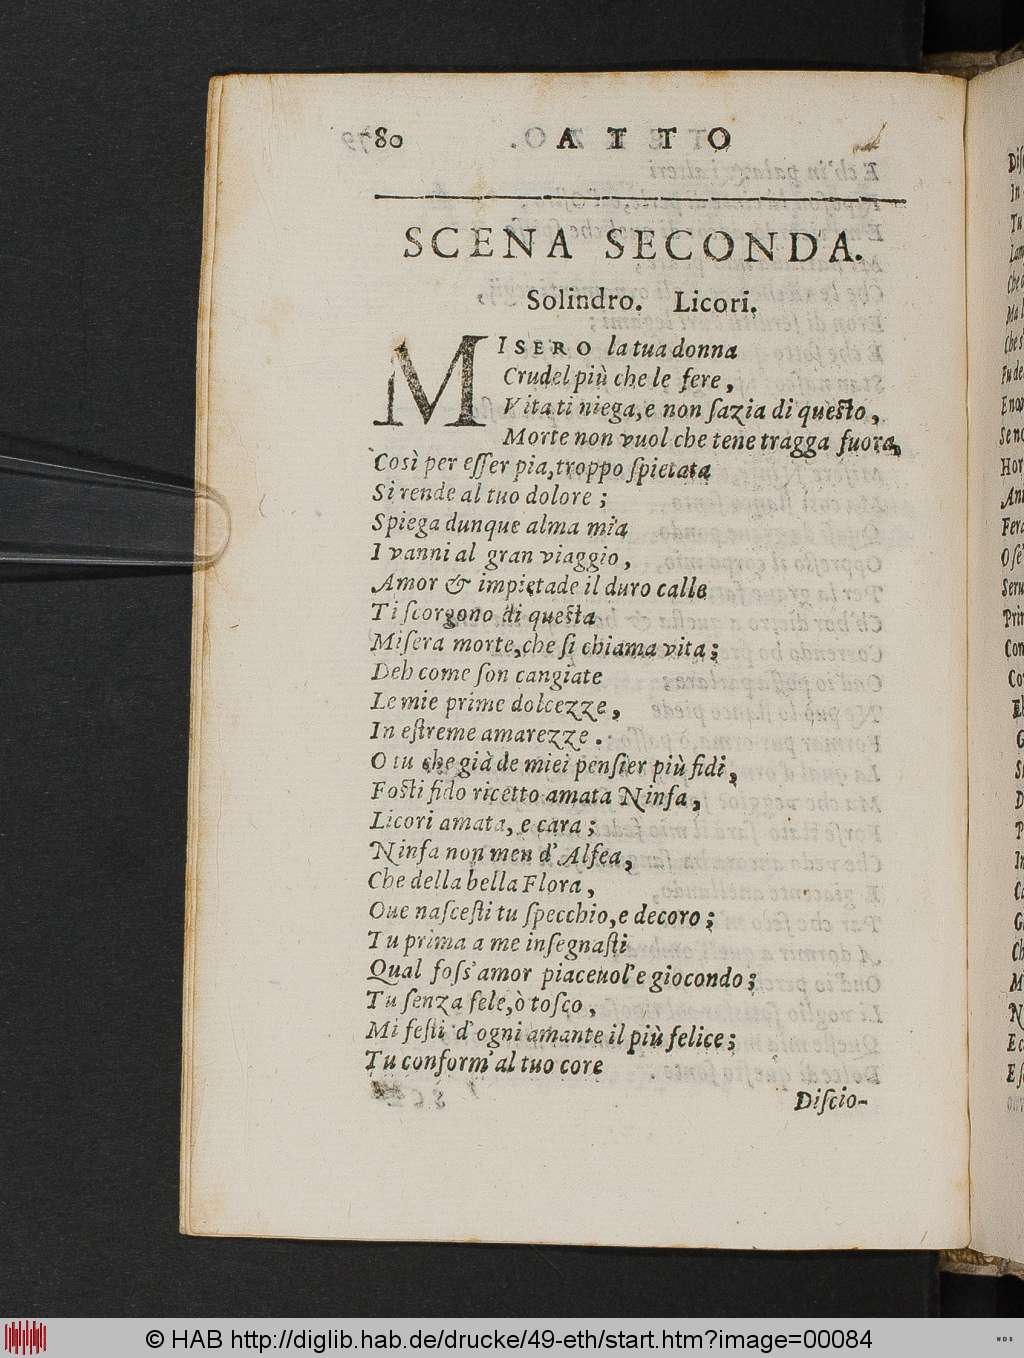 80 ATTO
SCENA SECONDA.
Solindro. Licori.
MISERO la tua donna
Crudel più che le fere,
Vita ti niega, e non ſazia di queſto,
Morte non vuol che tene tragga fuora,
Così per eſſer pia, troppo ſpietata
Si rende al tuo dolore;
Spiega dunque alma mia
I vanni al gran viaggio,
Amor & impietade il duro calle
Ti ſcorgono di queſta
Miſera morte, che ſi chiama vita;
Deh come ſon cangiate
Le mie prime dolcezze,
In eſtreme amarezze.
O tu che già de miei penſier più fidi,
Foſti fido ricetto amata Ninfa,
Licori amata, e cara;
Ninfa non men d'Alfea,
Che della bella Flora,
Oue naſceſti tu ſpecchio, e decoro;
Tu prima a me inſegnaſti
Qual foſs'amor piaceuol'e giocondo;
Tu ſenza fele, ò toſco,
Mi feſti d'ogni amante il più felice;
Tu conform'al tuo core
Diſcio-
© HAB http://diglib.hab.de/drucke/49-eth/start.htm?image=00084